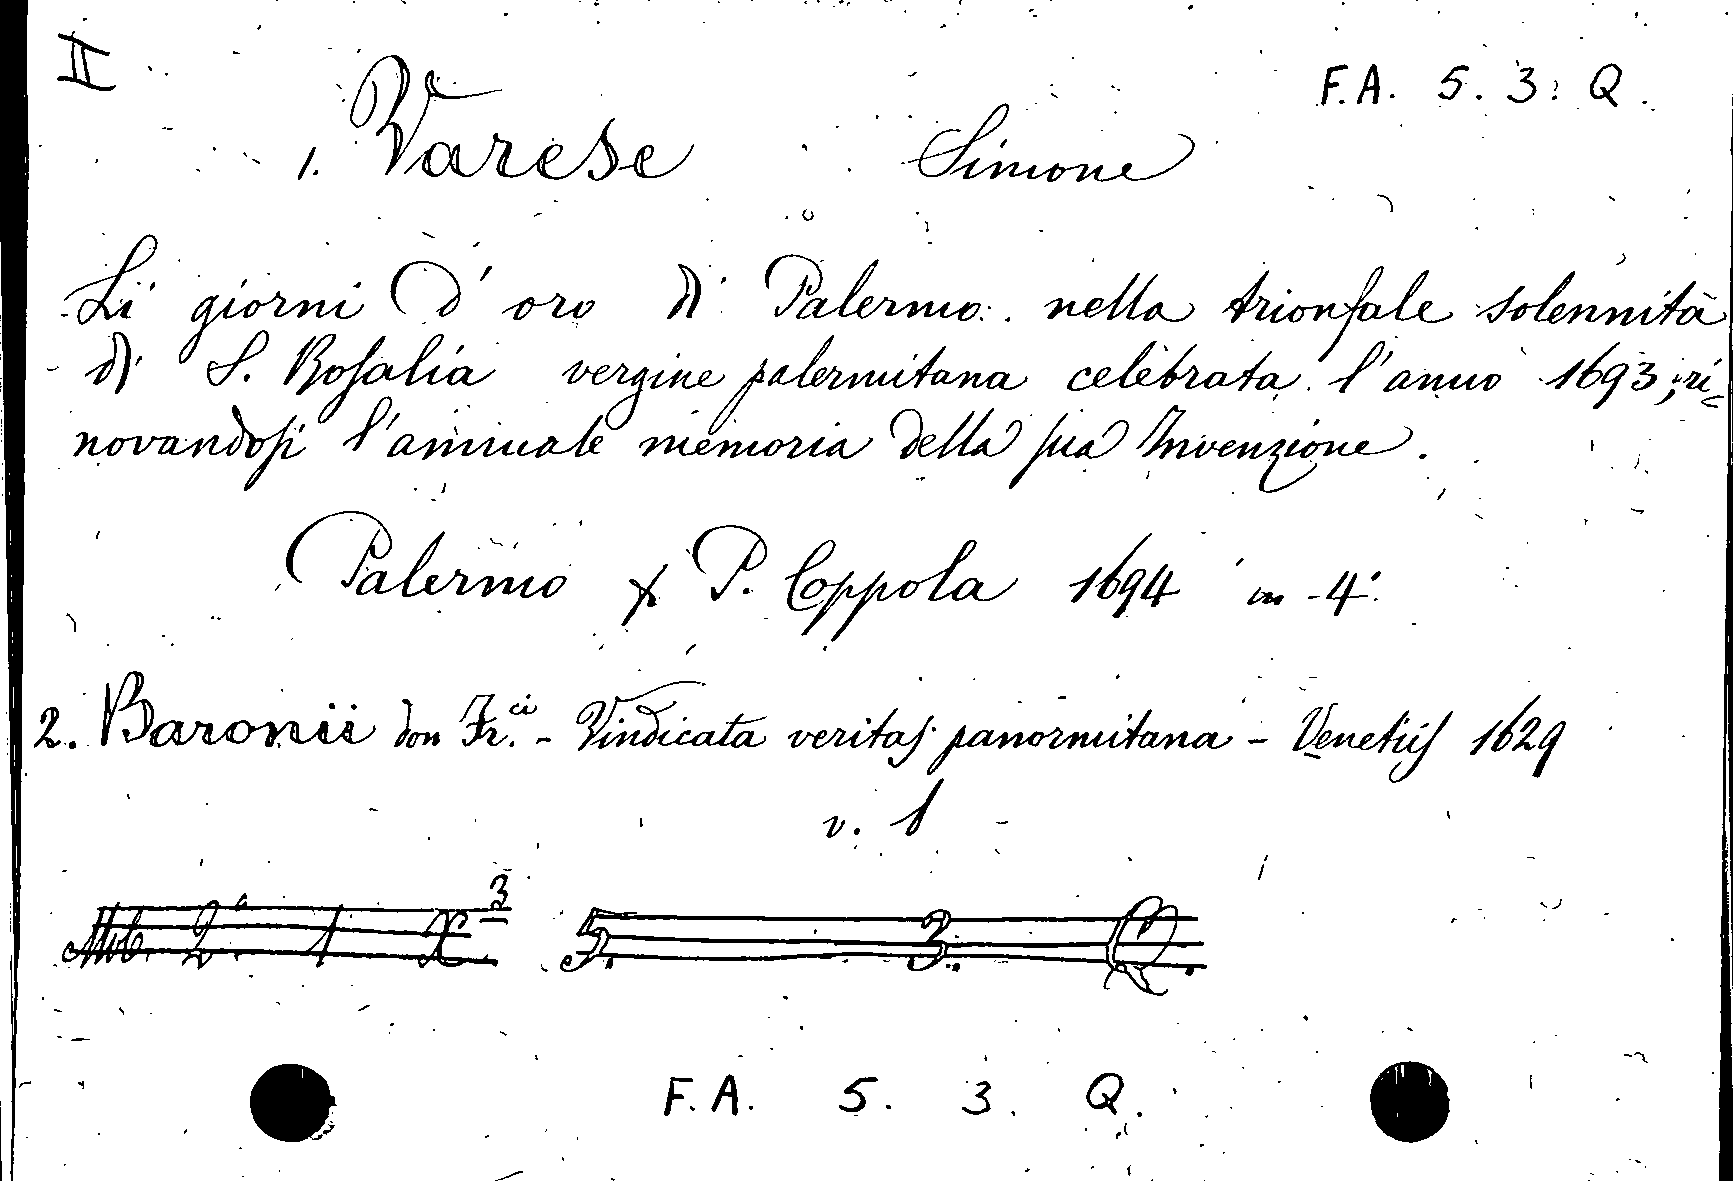 II
F.A. 5. 3. Q.
1. Varese Simone
Li giorni d'oro di Palermo nella trionfale solennità
di S. Rosalia vergine palermitana celebrata l'anno 1693, ri=
novandosi l'annuale memoria della sua Invenzione.
Palermo x P. Coppola 1694 in-4°
2. Baronii don Fr.ci - Vindicata veritas panormitana - Venetiis 1629
v. 1
Mb. 2ª 1 X 3 5. 3. Q.
F.A. 5. 3. Q.